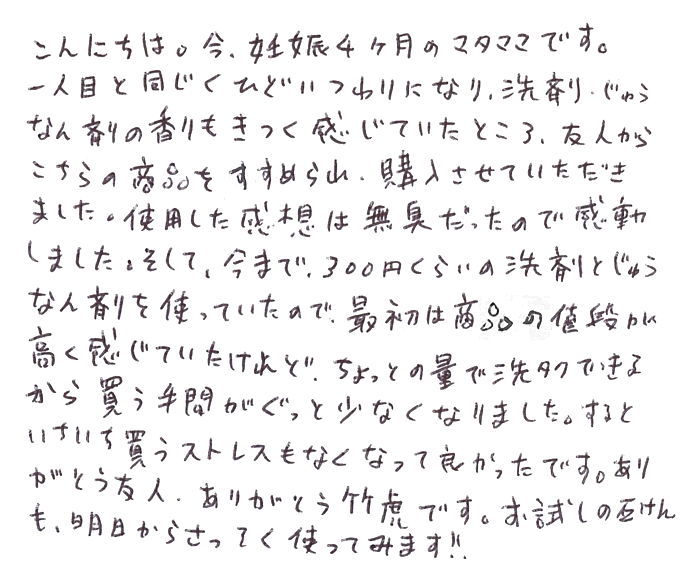 こんにちは。今、妊娠4ヶ月のマタママです。
一人目と同じくひどいつわりになり、洗剤・じゅう
なん剤の香りもきつく感じていたところ、友人から
こちらの商品をすすめられ、購入させていただき
ました。使用した感想は無臭だったので感動
しました。そして、今まで、300円くらいの洗剤とじゅう
なん剤を使っていたので、最初は商品の値段が
高く感じていたけれど、ちょっとの量で洗タクできる
から買う手間がぐっと少なくなりました。すると
いちいち買うストレスもなくなって良かったです。あり
がとう友人、ありがとう竹虎です。お試しの石けん
も、明日からさっそく使ってみます!!